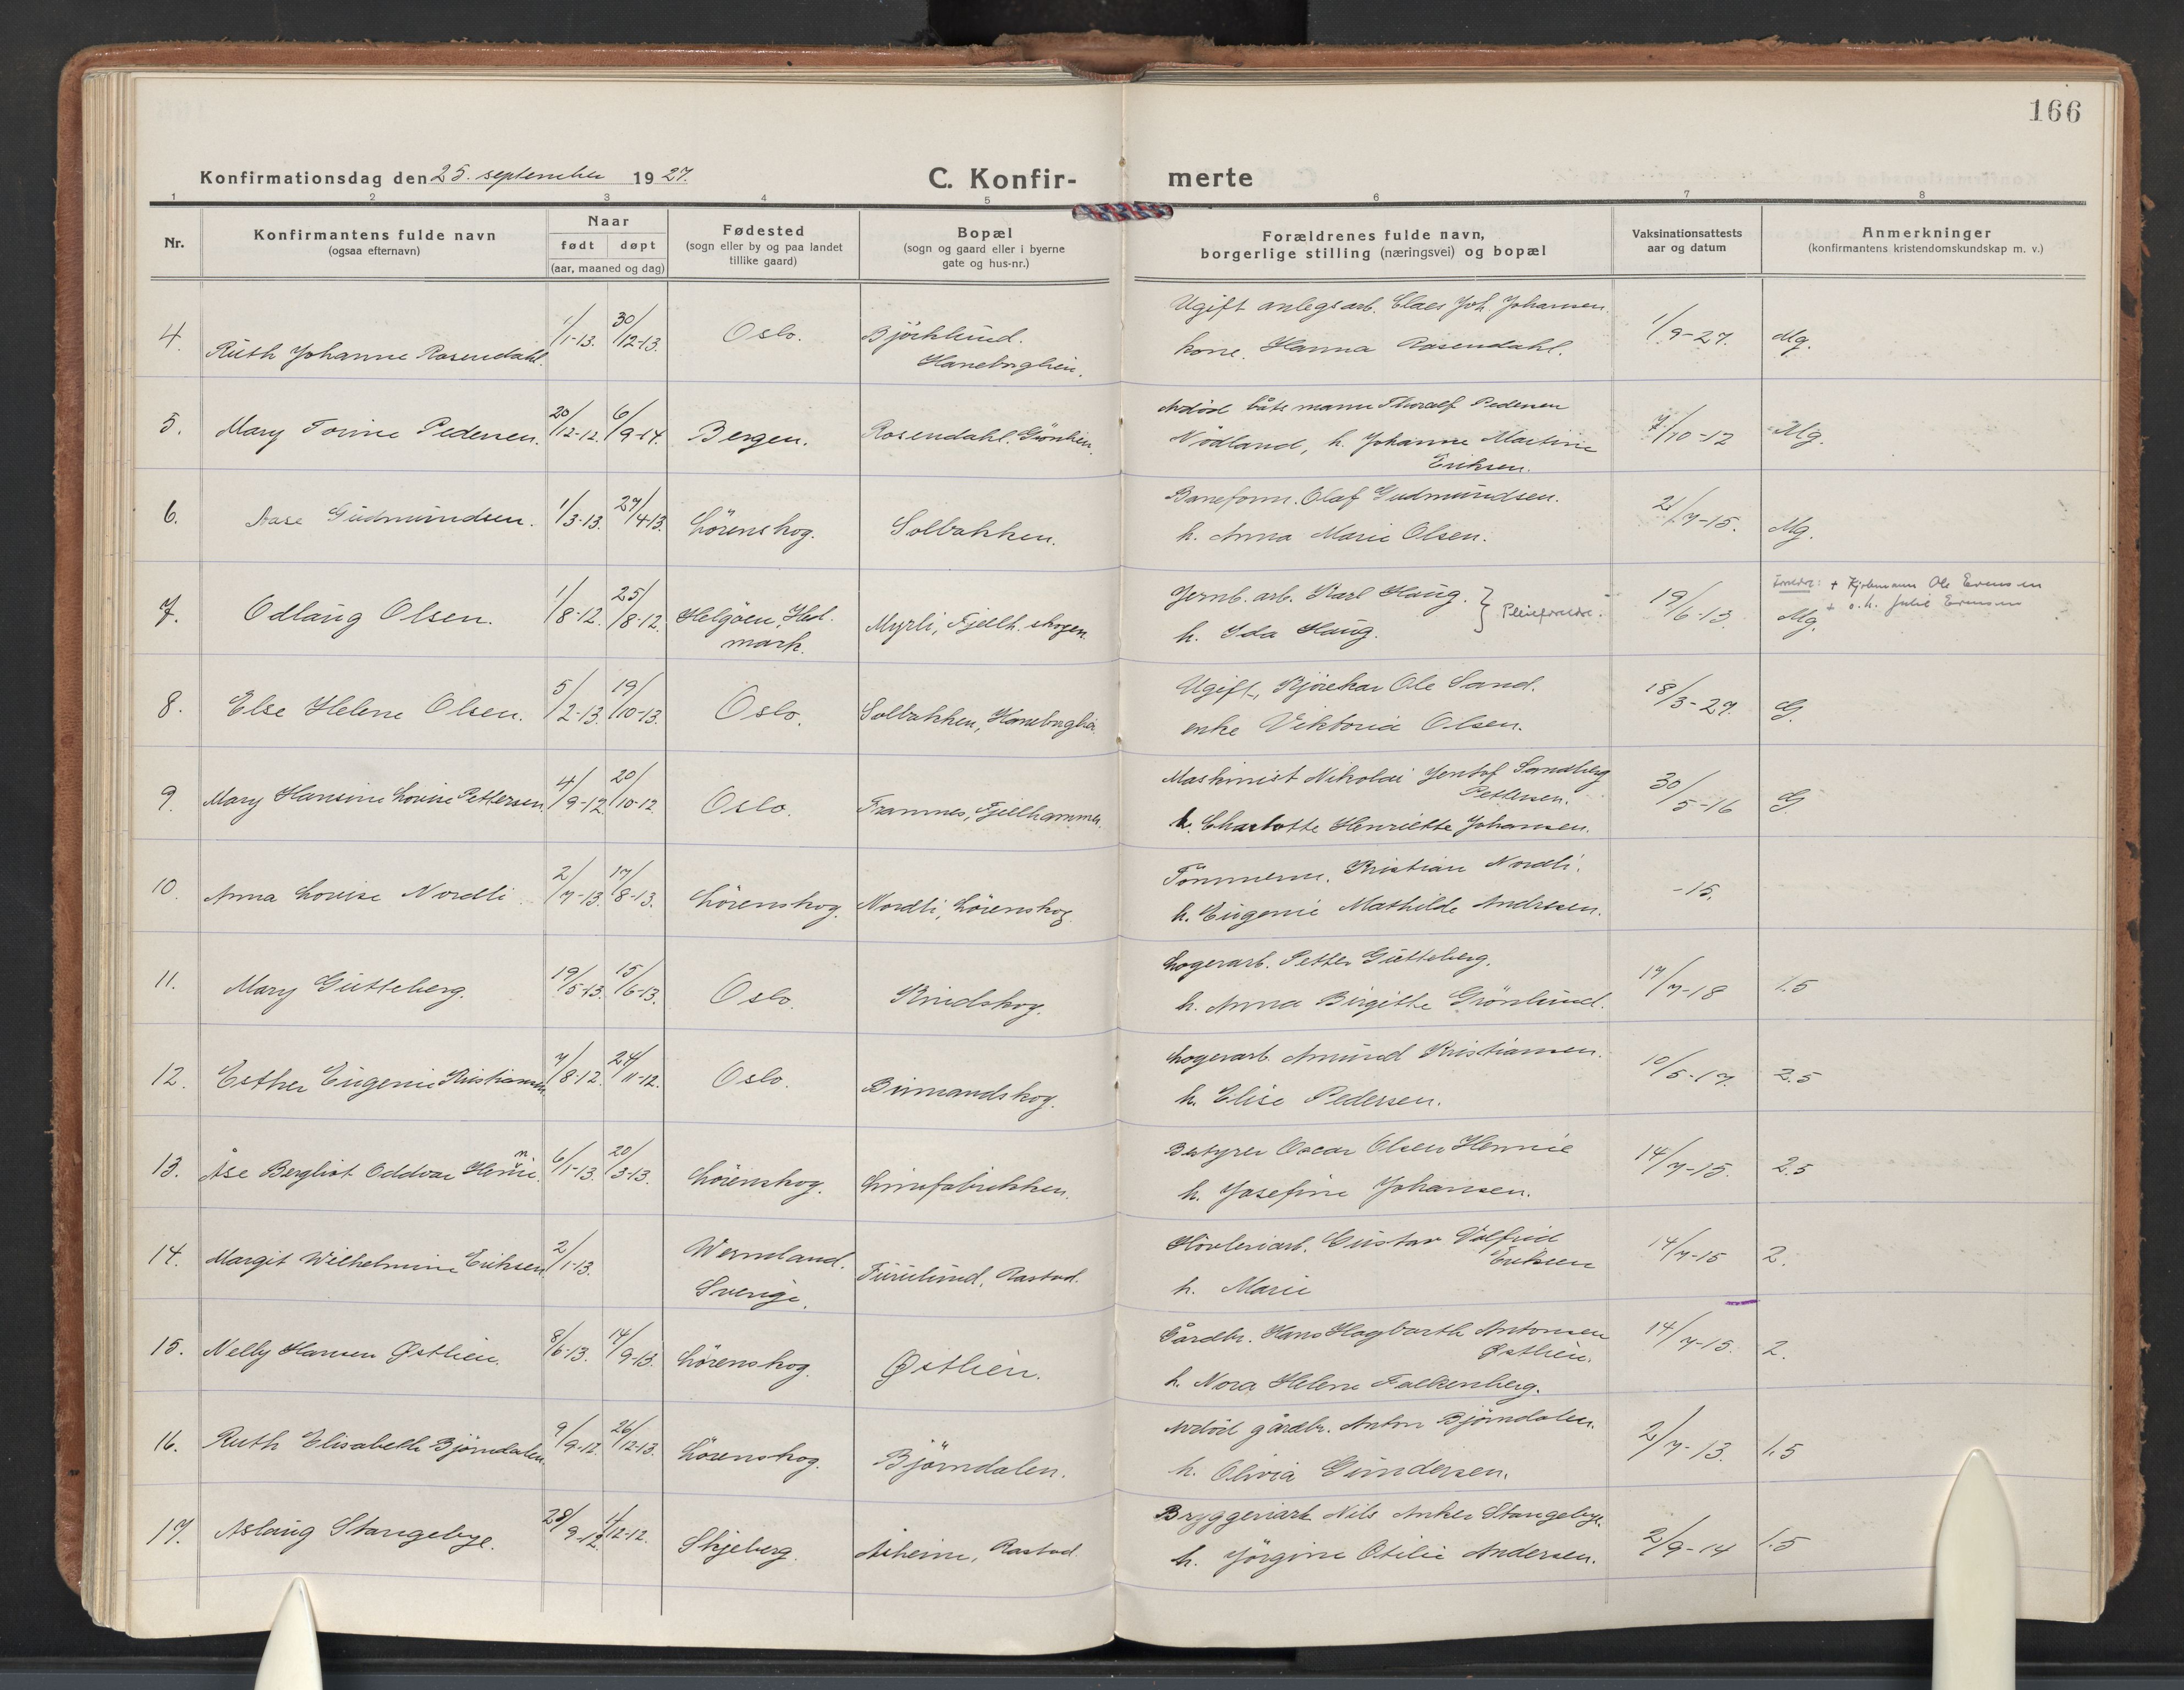 166
Konfirmationsdag den 25. september 1927.
C. Konfir- merte
1 2 3 4 5 6 7 8
Nr.
Konfirmantens fulde navn
(ogsaa efternavn)
Naar
født døpt
(aar, maaned og dag)
Fødested
(sogn eller by og paa landet
tillike gaard)
Bopæl
(sogn og gaard eller i byerne
gate og hus-nr.)
Forældrenes fulde navn,
borgerlige stilling (næringsvei) og bopæl
Vaksinationsattests
aar og datum
Anmerkninger
(konfirmantens kristendomskundskap m. v.)
4. Ruth Johanne Rosendahl. 1/1-13. 30/12-13. Oslo. Björklund.
Haneborglien.
Ugift anlegsarb. Claes Joh. Johansen
kone. Hanna Rosendahl. 1/9-27. Mg.
5. Mary Torine Pedersen. 20/12-12. 6/9-14. Bergen. Rosendahl. Grønlien.
Avdöd båtsmann Thoralf Pedersen
Nödland, h. Johanne Martine
Eriksen. 7/10-12 Mg.
6. Aase Gudmundsen. 1/3-13. 27/4-13. Lörenskog. Solbakken.
Baneform. Olaf Gudmundsen.
h. Anna Marie Olsen. 21/7-15. Mg.
7. Odlaug Olsen. 1/8-12. 25/8-12. Helgöen, Hed.
mark. Myrli, Fjellh. skogen.
Jernb. arb. Karl Haug.
h. Ida Haug. } Pleieforeldre. 19/6-13. Mg.
Foreldre: + Kjöbmann Ole Evensen
+ o. h. Julie Evensen
8. Else Helene Olsen. 5/2-13. 19/10-13. Oslo. Solbakken, Haneborglien.
Ugift, Kjörekar Ole Sand.
enke Viktoria Olsen. 18/3-27. G.
9. Mary Hansine Lovise Pettersen. 4/9-12 20/10-12 Oslo. Framnes, Fjellhammer.
Maskinist Nikolai Jentof Sandberg
Pettersen.
h. Charlotte Henriette Johansen. 30/5-16 G.
10. Anna Lovise Nordli. 2/7-13. 17/8-13. Lörenskog. Nordli, Lörenskog.
Tömmerm. Kristian Nordli.
h. Eugenie Mathilde Andresen. -15.
11. Mary Gutteberg. 19/5-13. 15/6-13. Oslo. Rudskog.
Lagerarb. Petter Gutteberg.
h. Anna Birgitte Grönlund. 17/7-18 1.5
12. Esther Eugenie Kristiansen. 7/8-12. 24/11-12. Oslo.
Lagerarb. Amund Kristiansen.
h. Elise Pedersen. 10/5-17. 2.5
13. Åse Bergliot Oddvar Hennie. 6/1-13. 20/3-13. Lörenskog. Limfabrikken.
Bestyrer Oscar Olsen Hennie
h. Josefine Johansen. 14/7-15. 2.5
14. Margit Wilhelmine Eriksen. 2/1-13. Wermland.
Sverige. Furulund, Rastad.
Hövleriarb. Gustav Valfrid
Eriksen
h. Marie 14/7-15 2.
15. Nelly Hansen Østlien. 8/6-13. 14/9-13. Lörenskog. Østlien.
Gårdbr. Hans Hagbarth Antonsen
Østlien.
h. Nora Helene Falkenberg. 14/7-15. 2.
16. Ruth Elisabeth Björndalen. 9/9-12. 26/12-13. Lörenskog. Björndalen.
Avdöd gårdbr. Anton Björndalen.
h. Olivia Gundersen. 2/7-13. 1.5
17. Aslaug Stangebye. 28/9-12. 1/12-12. Skjeberg. Åsheim, Rastad.
Bryggeriarb. Nils Anker Stangebye.
h. Jörgine Otilie Andersen. 2/9-14 1.5